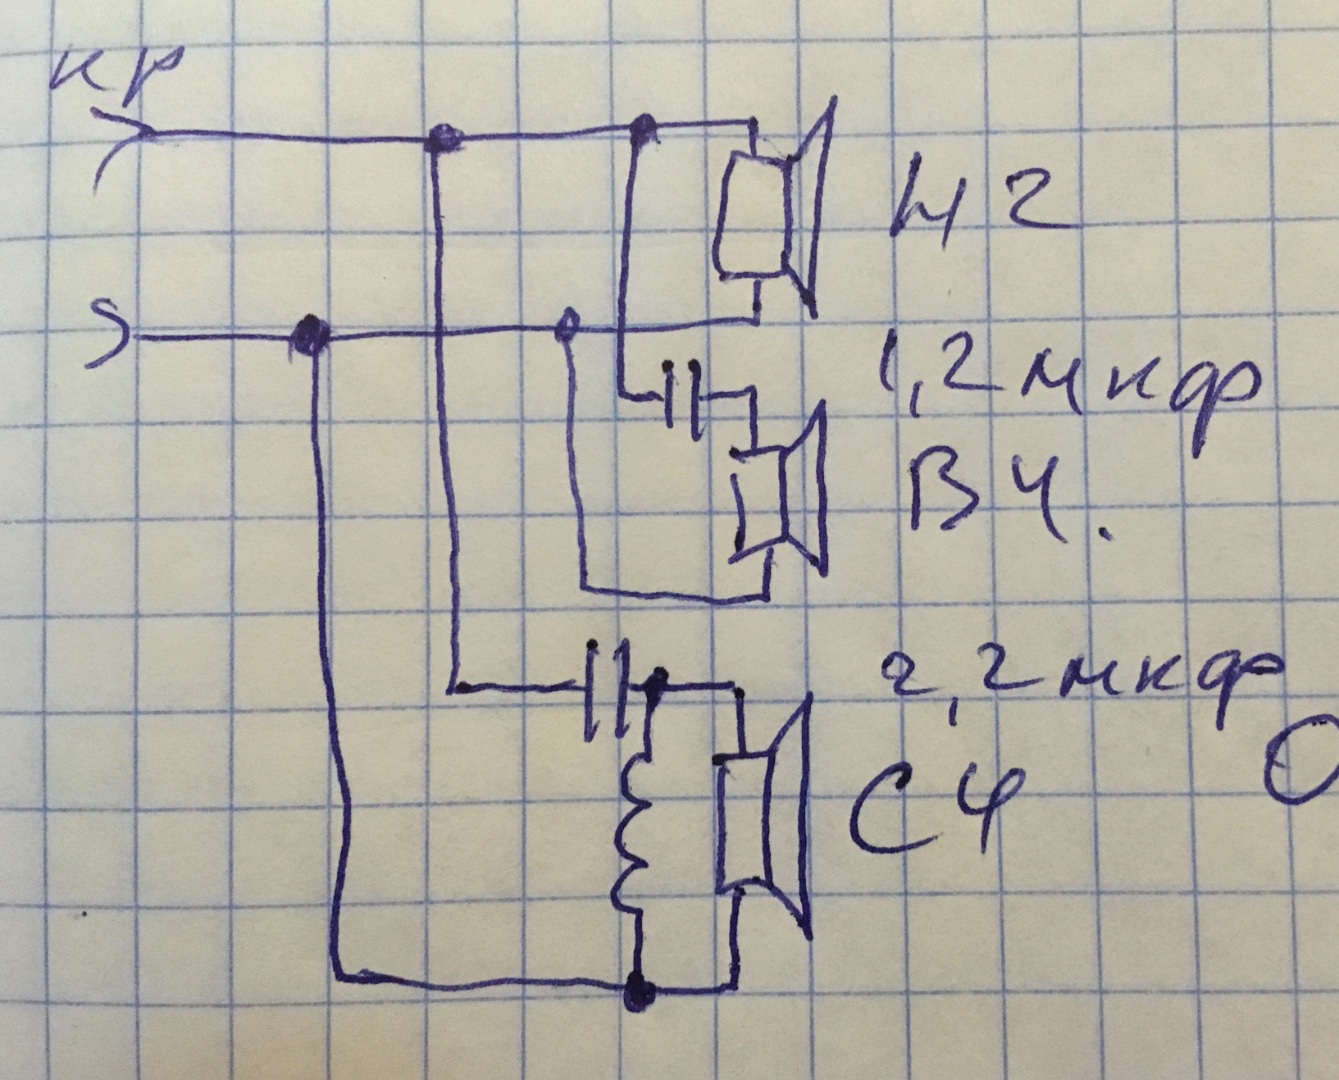 кр
НЧ
1,2 мкф
ВЧ.
2,2 мкф
СЧ